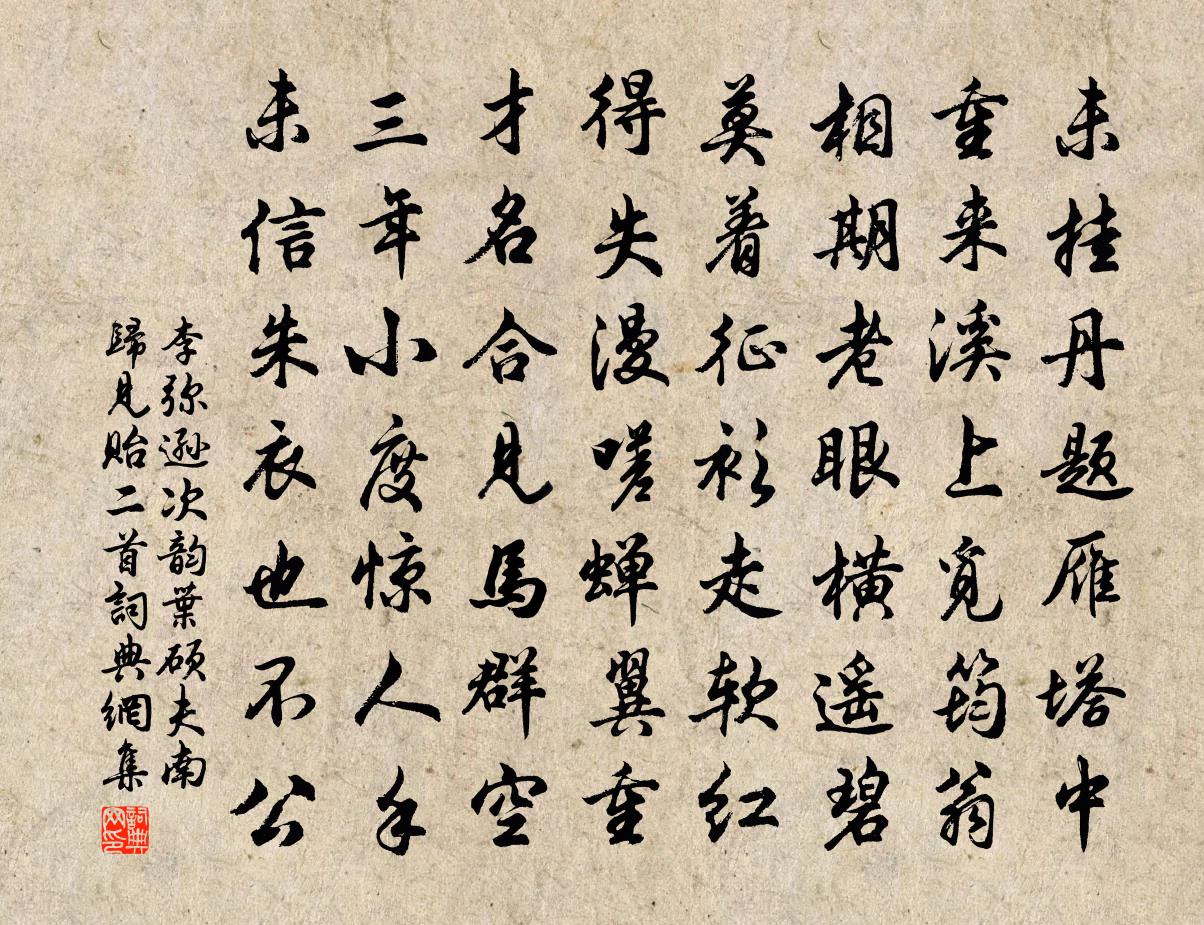 未挂丹题雁塔中
重来溪上觅筠翁
相期老眼横遥碧
莫着征衫走软红
得失漫嗟蝉翼重
才名合见馬群空
三年小度惊人手
未信朱衣也不公
李弥逊次韵葉硕夫南
歸見贻二首詞典網集
詞典网印